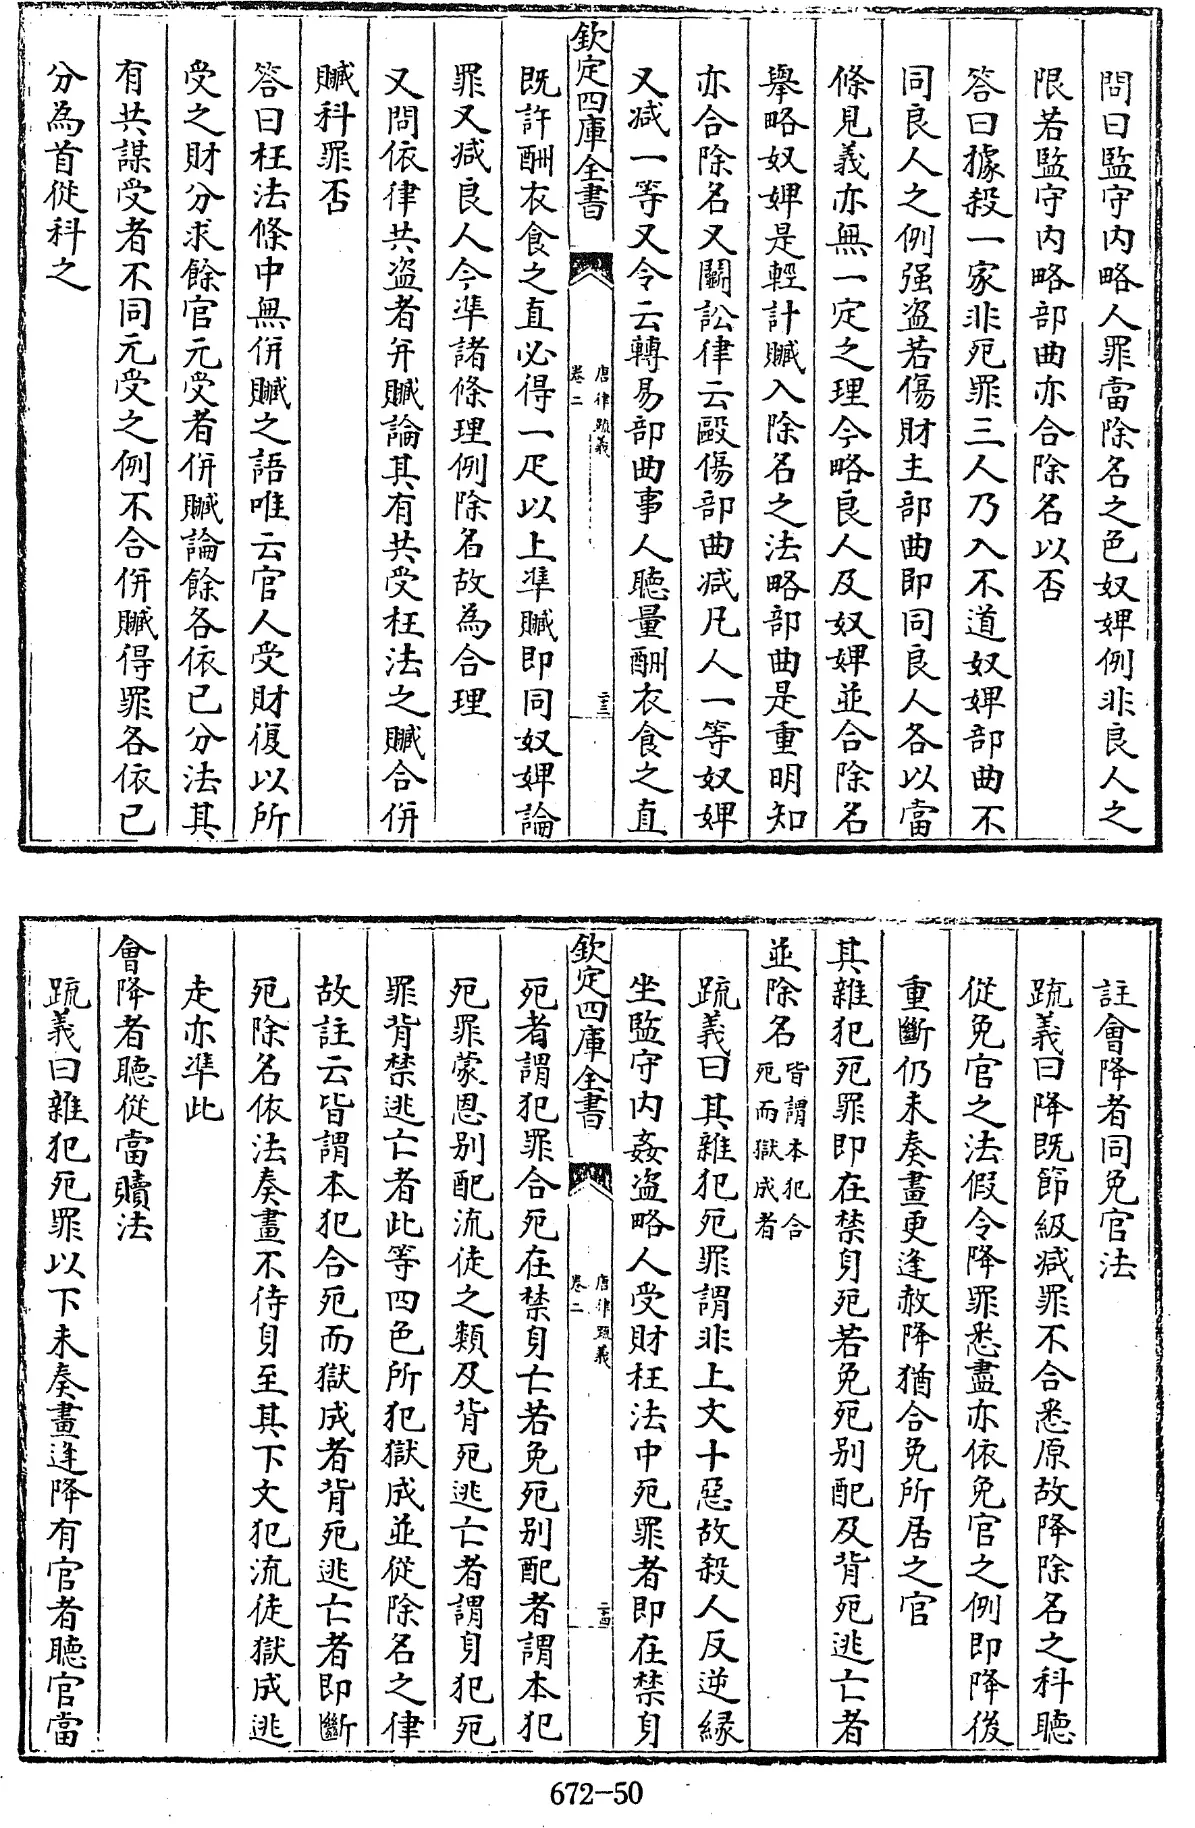 問曰監守内略人罪當除名之色奴婢例非良人之
限若監守内略部曲亦合除名以否
答曰據殺一家非死罪三人乃入不道奴婢部曲不
同良人之例强盜若傷財主部曲即同良人各以當
條見義亦無一定之理今略良人及奴婢並合除名
舉略奴婢是輕計贓入除名之法略部曲是重明知
亦合除名又鬭訟律云毆傷部曲减凡人一等奴婢
又减一等又令云轉易部曲事人聽量酬衣食之直
欽定四庫全書
唐律疏義
卷二
二十三
既許酬衣食之直必得一疋以上準贓即同奴婢論
罪又减良人今準諸條理例除名故為合理
又問依律共盜者併贓論其有共受枉法之贓合併
贓科罪否
答曰枉法條中無併贓之語唯云官人受財復以所
受之財分求餘官元受者併贓論餘各依已分法其
有共謀受者不同元受之例不合併贓得罪各依已
分為首從科之
註會降者同免官法
疏義曰降既節級减罪不合悉原故降除名之科聽
從免官之法假令降罪悉盡亦依免官之例即降後
重斷仍未奏畫更逢赦降猶合免所居之官
其雜犯死罪即在禁身死若免死别配及背死逃亡者
並除名皆謂本犯合
死而獄成者
疏義曰其雜犯死罪謂非上文十惡故殺人反逆縁
坐監守内姦盜略人受財枉法中死罪者即在禁身
欽定四庫全書
唐律疏義
卷二
二十四
死者謂犯罪合死在禁身亡若免死别配者謂本犯
死罪蒙恩别配流徒之類及背死逃亡者謂身犯死
罪背禁逃亡者此等四色所犯獄成並從除名之律
故註云皆謂本犯合死而獄成者背死逃亡者即斷
死除名依法奏畫不待身至其下文犯流徒獄成逃
走亦準此
會降者聽從當贖法
疏義曰雜犯死罪以下未奏畫逢降有官者聽官當
672-50